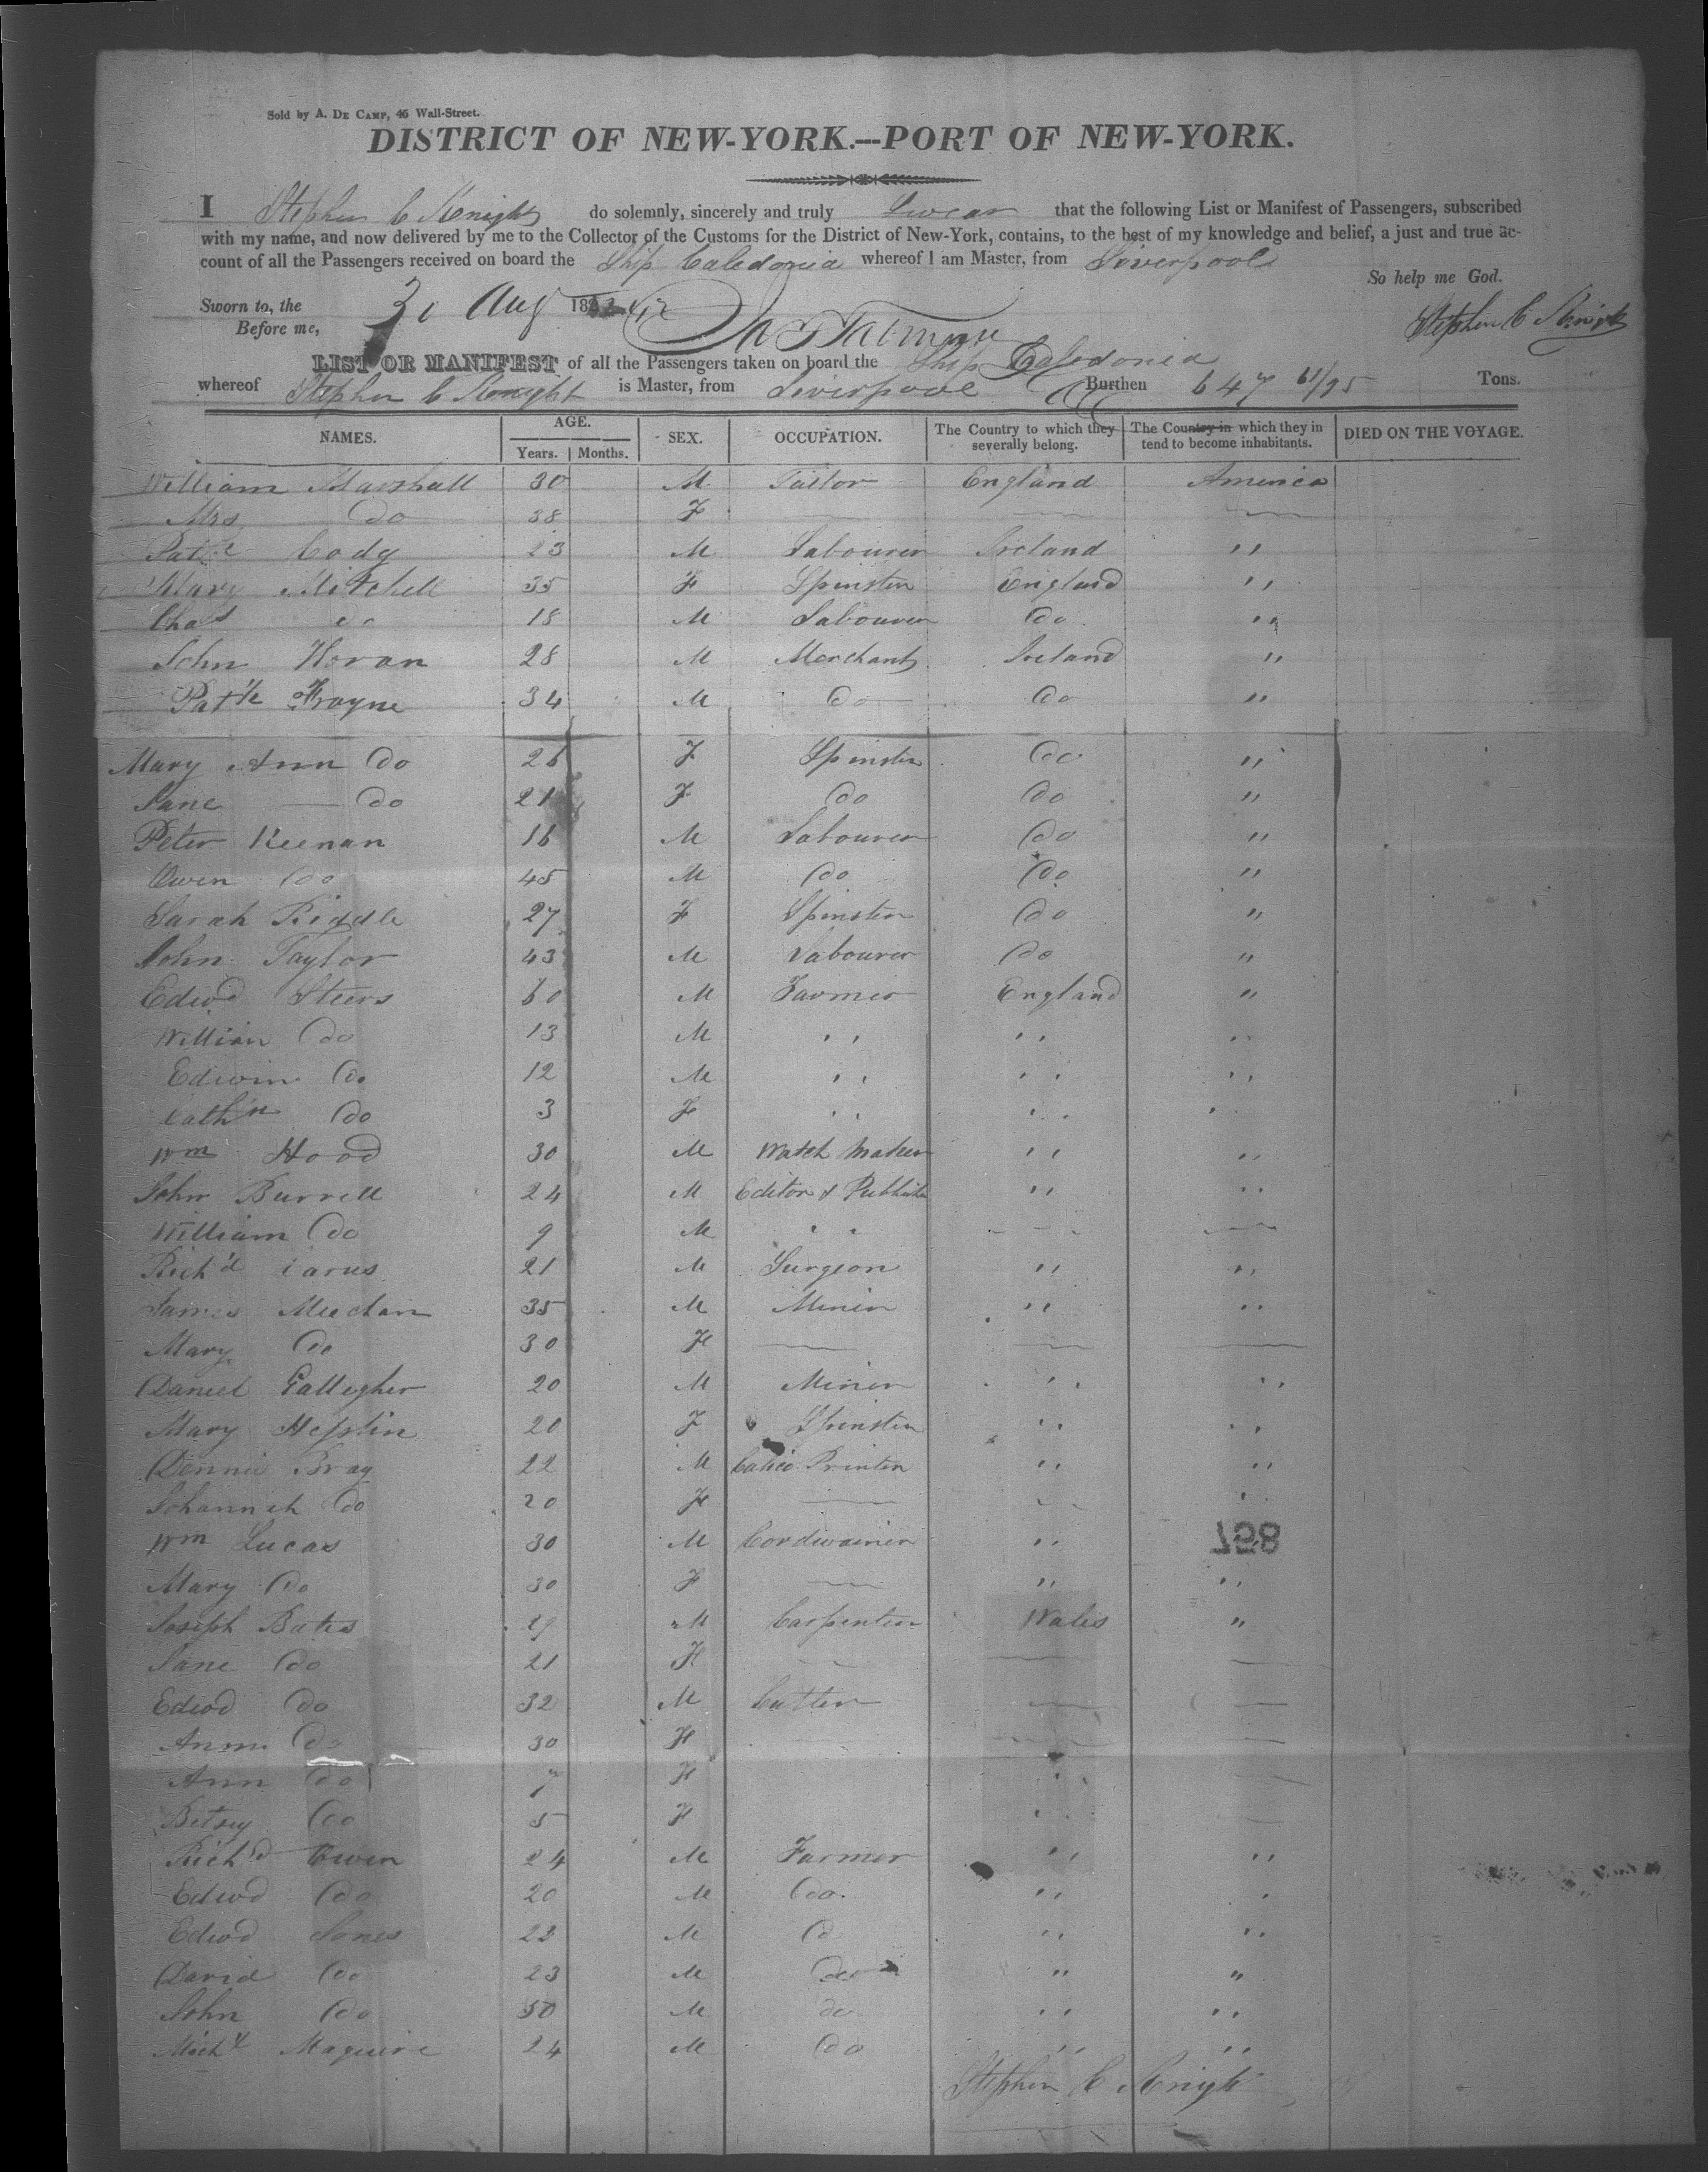 Sold by A. DE CAMP, 46 Wall-Street.
DISTRICT OF NEW-YORK.---PORT OF NEW-YORK.
I Stephen C Knight do solemnly, sincerely and truly Swear that the following List or Manifest of Passengers, subscribed
with my name, and now delivered by me to the Collector of the Customs for the District of New-York, contains, to the best of my knowledge and belief, a just and true ac-
count of all the Passengers received on board the Ship Caledonia whereof I am Master, from Liverpool
So help me God.
Sworn to, the 30 Aug 18
Before me,
Stephen C Knight
LIST OR MANIFEST of all the Passengers taken on board the Ship Caledonia
whereof Stephen C Knight is Master, from Liverpool Burthen 647 61/95 Tons.
NAMES. AGE. Years. Months. SEX. OCCUPATION. The Country to which they severally belong. The Country in which they in tend to become inhabitants. DIED ON THE VOYAGE.
William Marshall 30 M Tailor England America
Mrs Do 38 F
Patk Cody 23 M Labourer Ireland "
Mary Mitchell 35 F Spinster England "
Chas do 18 M Labourer Do "
John Horan 28 M Merchant Ireland "
Patk Frayne 34 M Do Do "
Mary Ann Do 26 F Spinster Do "
Jane — Do 21 F Do Do "
Peter Keenan 16 M Labourer Do "
Owen Do 45 M Do Do "
Sarah Riddle 27 F Spinster Do "
John Taylor 43 M Labourer Do "
Edwd Steers 60 M Farmer England "
William Do 13 M " " "
Edwin Do 12 M " " "
Cathn Do 3 F " " "
Wm Hood 30 M Watch Maker " "
John Burrell 24 M Editor & Publisher " "
William Do 9 M "
Rich'd 21 M Surgeon " "
James Meechan 35 M Miner " "
Mary Do 30 F
Daniel Gallegher 20 M Miner " "
Mary Heslin 20 F Spinster " "
Dennis Bray 22 M Calico Printer " "
Johannah Do 20 F — " "
Wm Lucas 30 M Cordwainer "
758
Mary Do 30 F — " "
Joseph Bates 29 M Carpenter Wales "
Jane Do 21 F
Edwd Do 32 M Cutler
Ann Do 30 F
Ann Do 7 F
Betsey Do 5 F
Rich'd Owen 24 M Farmer " "
Edwd Do 20 M Do. " "
Edwd Jones 23 M D " "
David Do 23 M Do " "
John Do 50 M do " "
Michl Maguire 24 M Do " "
Stephen C Knight